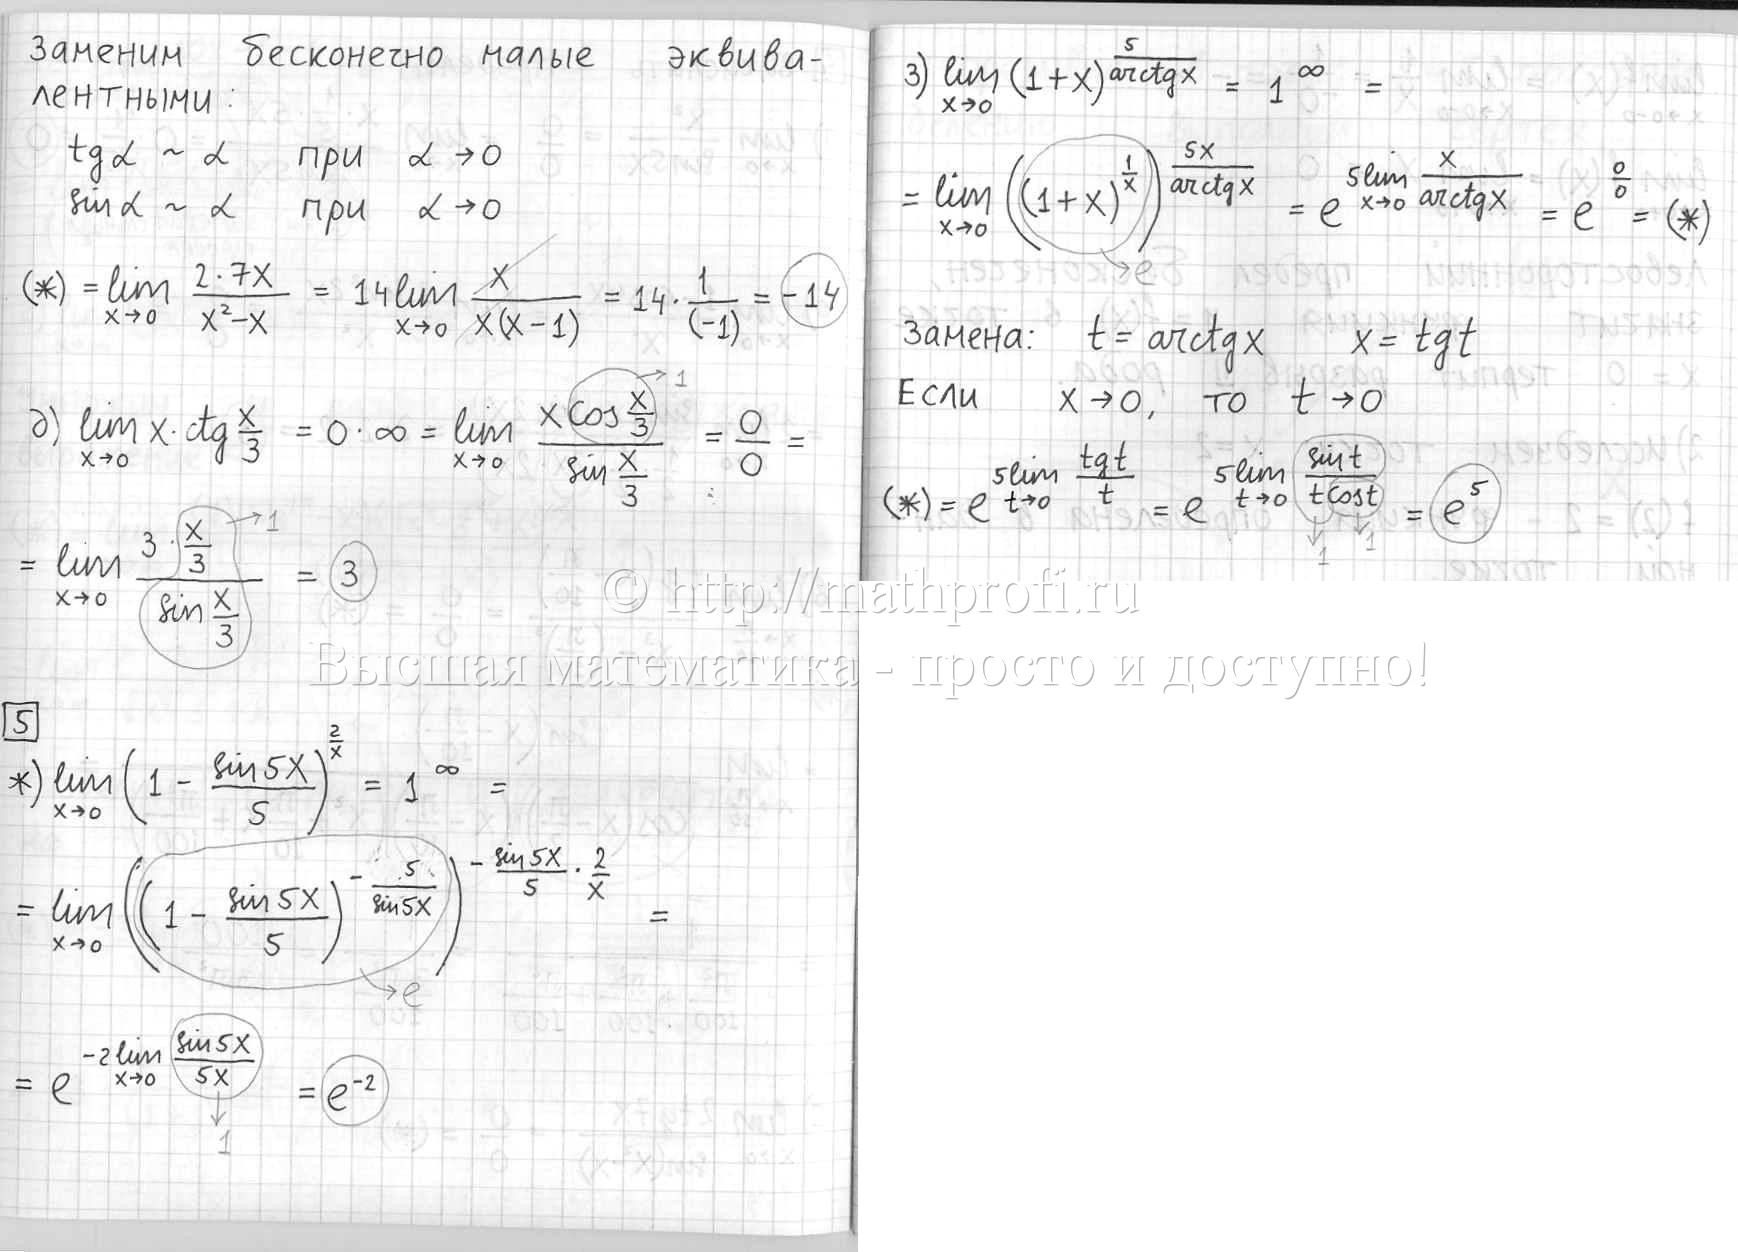 Заменим бесконечно малые эквива-
лентными:
tgα ~ α при α → 0
sinα ~ α при α → 0
(*) = lim x→0 2·7x/(x²-x) = 14 lim x→0 x/(x(x-1)) = 14 · 1/(-1) = -14
д) lim x→0 x·ctg x/3 = 0·∞ = lim x→0 (x cos x/3)/(sin x/3) = 0/0 =
→ 1
= lim x→0 (3 · x/3)/(sin x/3) = 3
→ 1
5
ж) lim x→0 (1 - sin5x/5)^(2/x) = 1^∞ =
= lim x→0 ((1 - sin5x/5)^(-5/sin5x))^(-sin5x/5 · 2/x) =
→ e
= e^(-2 lim x→0 sin5x/5x) = e^(-2)
↓
1
з) lim x→0 (1+x)^(5/arctgx) = 1^∞ =
= lim x→0 ((1+x)^(1/x))^(5x/arctgx) = e^(5 lim x→0 x/arctgx) = e^(0/0) = (*)
→ e
Замена: t = arctgx x = tgt
Если x → 0, то t → 0
(*) = e^(5 lim t→0 tgt/t) = e^(5 lim t→0 sint/(t cost)) = e^5
↓ 1 ↓ 1
© http://mathprofi.ru
Высшая математика - просто и доступно!